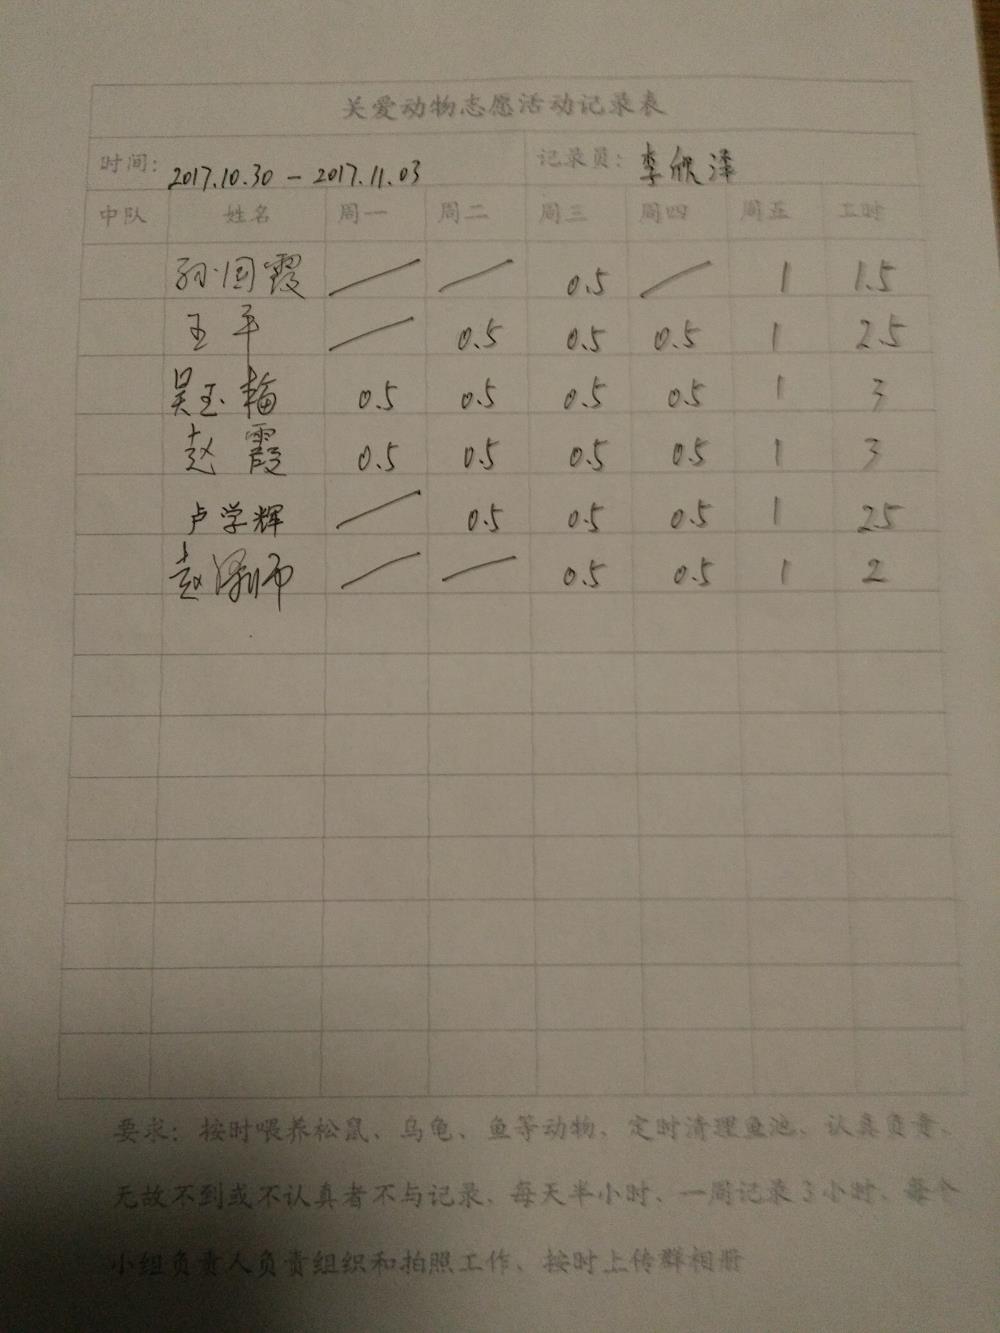 关爱动物志愿活动记录表
时间: 2017.10.30 - 2017.11.03 记录员: 李欣泽
中队 姓名 周一 周二 周三 周四 周五 工时
孙国霞 / / 0.5 / 1 1.5
王平 / 0.5 0.5 0.5 1 2.5
吴玉梅 0.5 0.5 0.5 0.5 1 3
赵霞 0.5 0.5 0.5 0.5 1 3
卢学辉 / 0.5 0.5 0.5 1 25
赵 / / 0.5 0.5 1 2
要求: 按时喂养松鼠、乌龟、鱼等动物、定时清理鱼池、认真负责、
无故不到或不认真者不与记录、每天半小时、一周记录3小时、每个
小组负责人负责组织和拍照工作、按时上传群相册